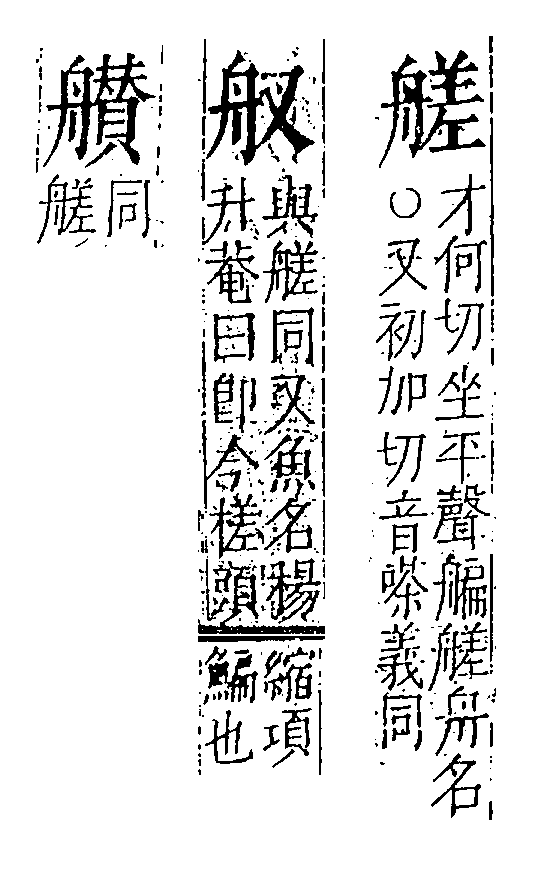 艖
才何切坐平聲艑艖舟名
○又初加切音嗏義同
䑡
與艖同又魚名楊
升菴曰卽今槎頭
縮項
鯿也
同
艖